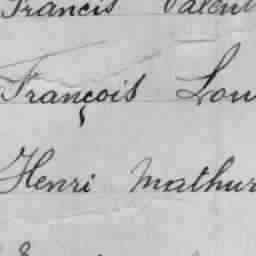 Francis Valent
François Lou
Henri Mathur